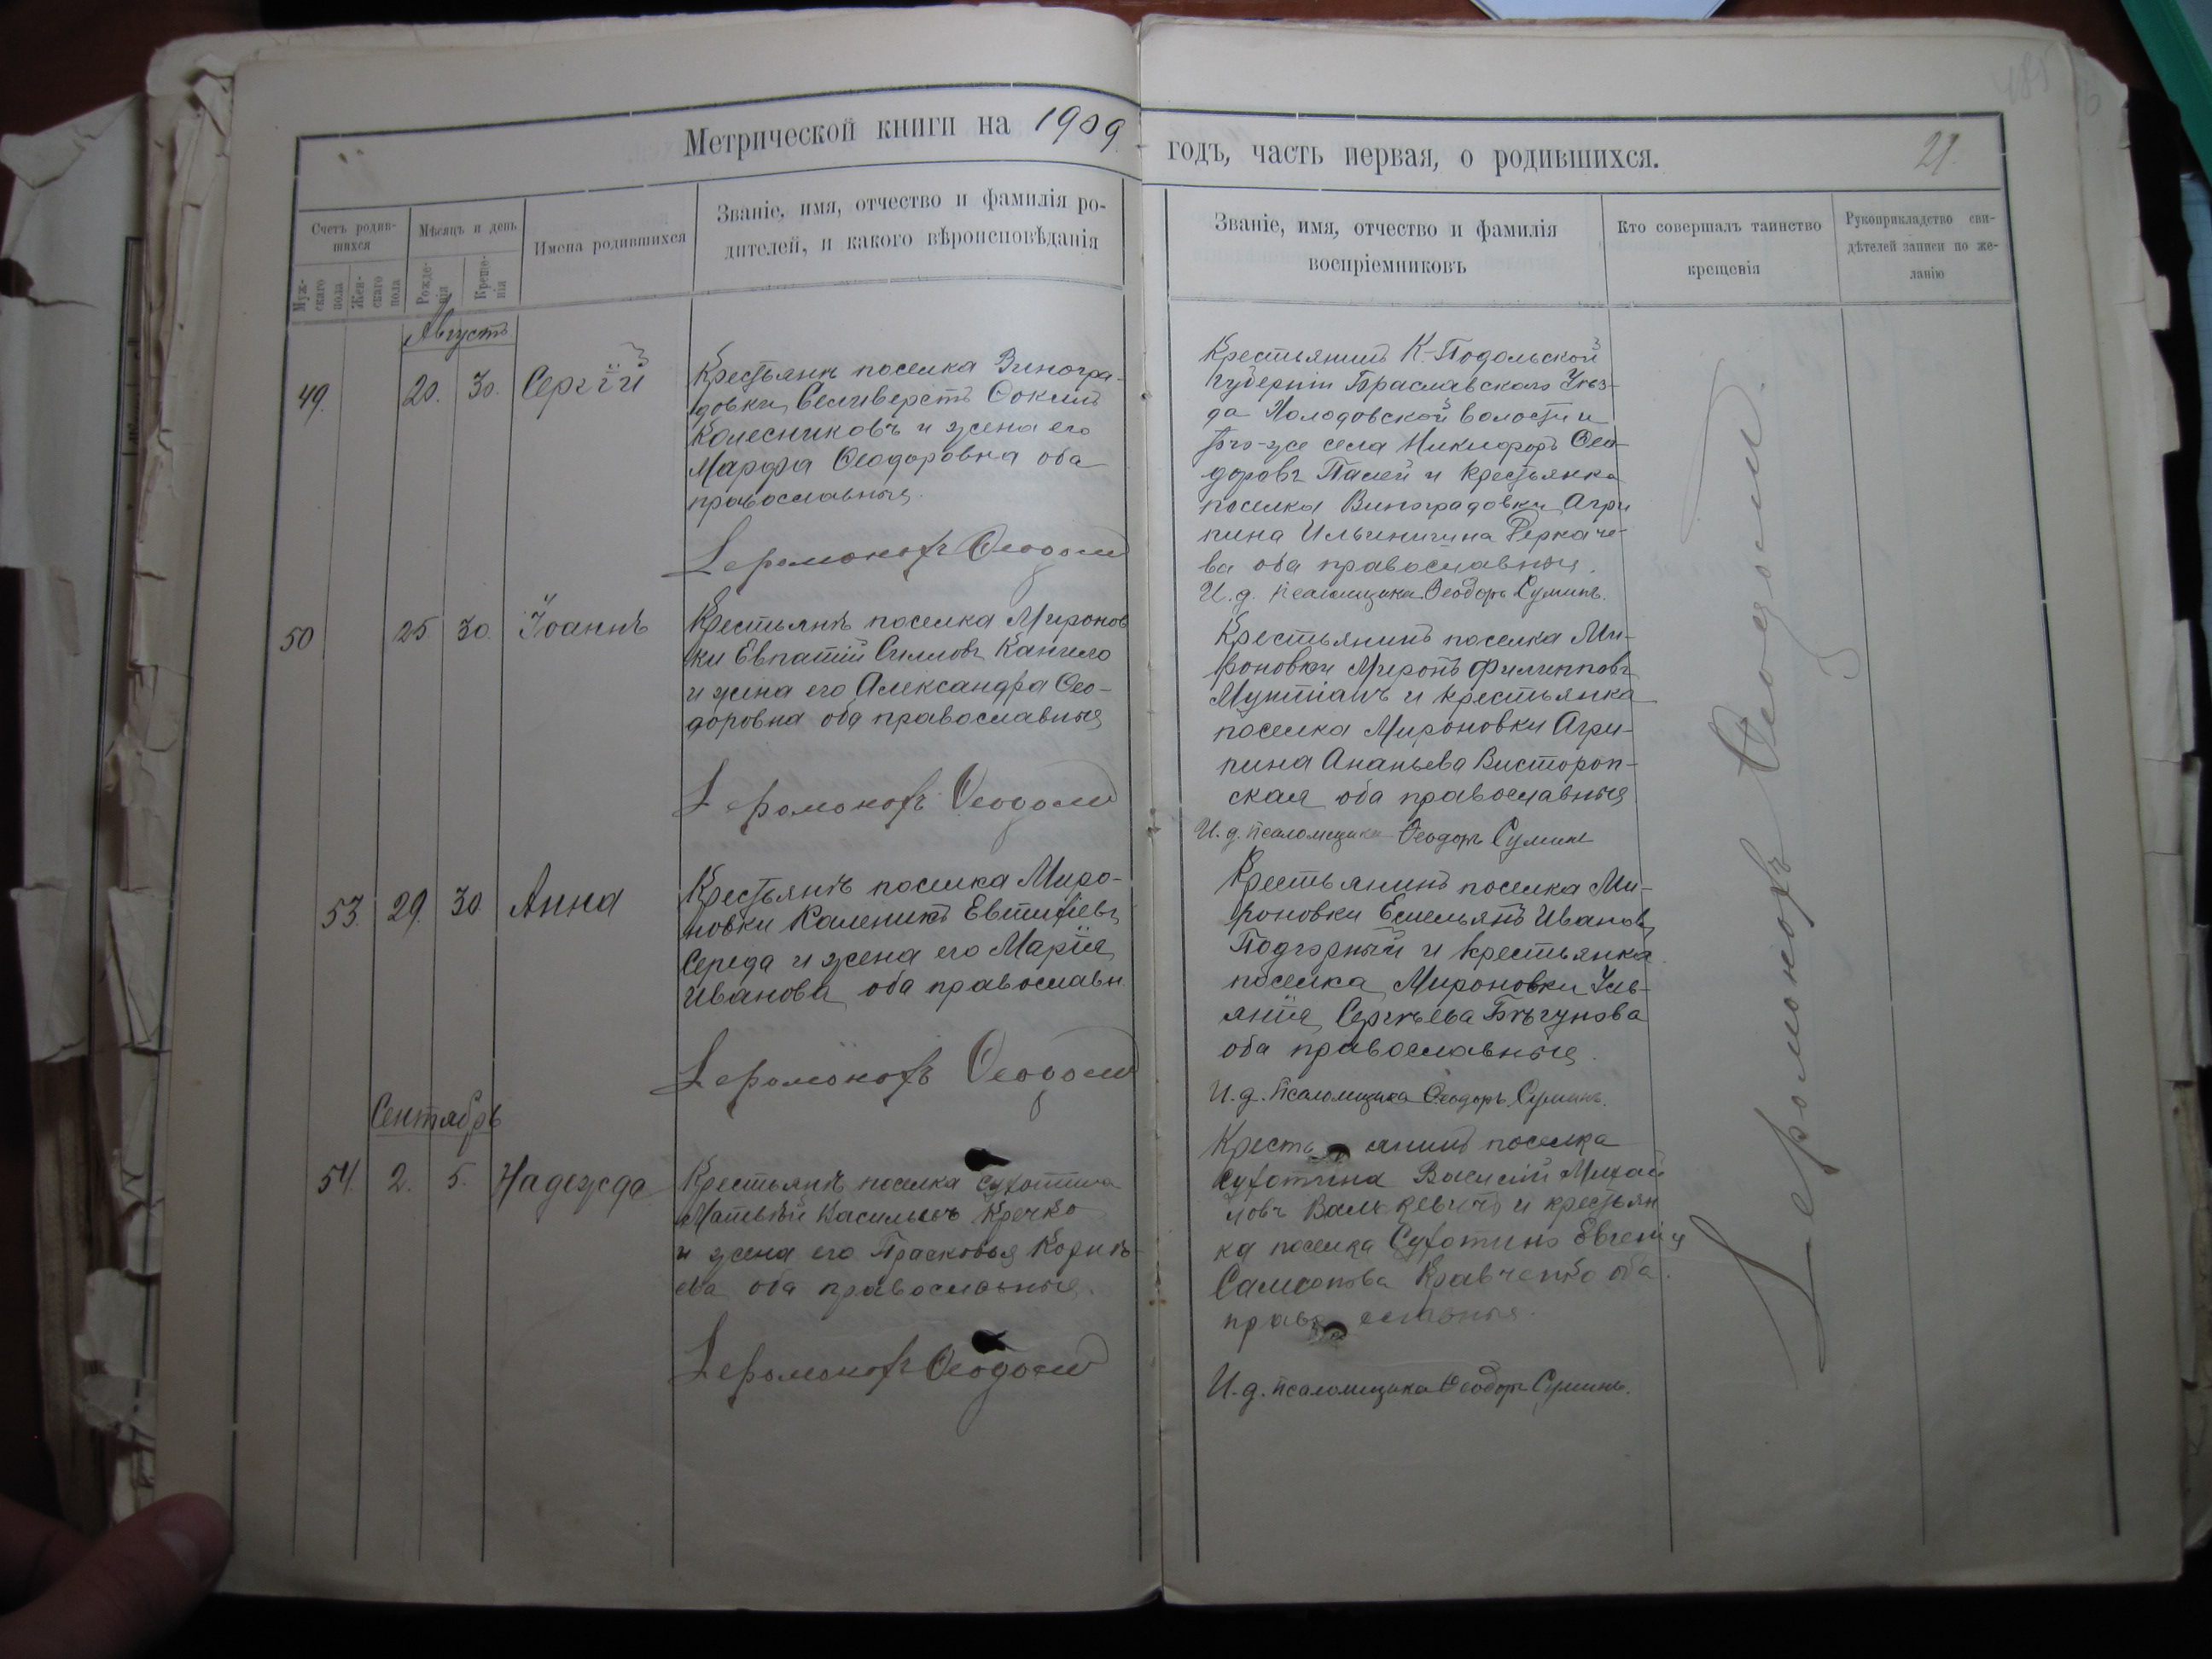 Метрической книги на 1909
годъ, часть первая, о родившихся.
21.
Счетъ родив-
шихся
Мѣсяцъ и день
Имена родившихся
Званіе, имя, отчество и фамилія ро-
дителей, и какого вѣроисповѣданія
Муж-
скаго
пола
Жен-
скаго
пола
Рожде-
нія
Креще-
нія
Званіе, имя, отчество и фамилія
воспріемниковъ
Кто совершалъ таинство
крещенія
Рукоприкладство сви-
дѣтелей записи по же-
ланію
Августъ
49. 20. 30. Сергій
Крестьянъ поселка Виногра-
довки, Селиверстъ
Колесниковъ и жена его
Марфа Ѳеодоровна оба
православныя.
Іеромонахъ Ѳеодосій
Крестьянинъ К-Подольской
губерніи Браславскаго Уѣз-
да волости и
того-же села Никифоръ Ѳео-
доровъ Палей и крестьянка
поселка Виноградовки Агри
пина Ильинична
ва оба православныя.
И. д. псаломщика Ѳеодоръ Суминъ.
50 25 30. Іоаннъ
Крестьянъ поселка Миронов
ки Евпатій
и жена его Александра Ѳео-
доровна оба православныя
Іеромонахъ Ѳеодосій
Крестьянинъ поселка Ми-
роновки Миронъ Филипповъ
Мунтіанъ и крестьянка
поселка Мироновки Агри-
пина Ананьева Вистороп-
ская оба православныя
И. д. псаломщика Ѳеодоръ Суминъ
53. 29. 30 Анна
Крестьянъ поселка Миро-
новки Каленикъ Евтихіевъ
Середа и жена его Марія
Иванова оба православн
Іеромонахъ Ѳеодосій
Крестьянинъ поселка Ми-
роновки Емельянъ Ивановъ
Подгорный и крестьянка
поселка Мироновки Уль-
янія Сергѣева Бѣгунова
оба православныя.
И. д. Псаломщика Ѳеодоръ Суминъ.
Сентябрь
54. 2. 5. Надежда
Крестьянъ поселка Сухотина
Матвѣй Васильевъ Кречко
и жена его Прасковья Корнѣ-
ева оба православныя.
Іеромонахъ Ѳеодосій
Крестьянинъ поселка
Сухотина Василій Михай
ловъ Валькевичъ и крестьян
ка поселка Сухотино Евгенія
Самсонова Кравченко оба
православныя.
И. д. псаломщика Ѳеодоръ Суминъ.
Іеромонахъ Ѳеодосій.